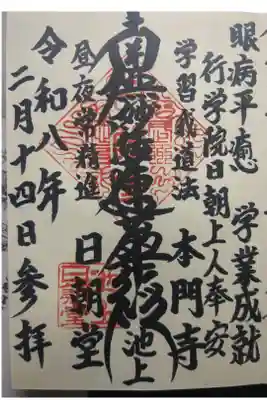 眼病平癒 学業成就
行学院日朝上人奉安
学習仏道法 本門寺
南無妙法蓮華経
池上
昼夜常精進 日朝堂
令和八年
二月十四日参拝